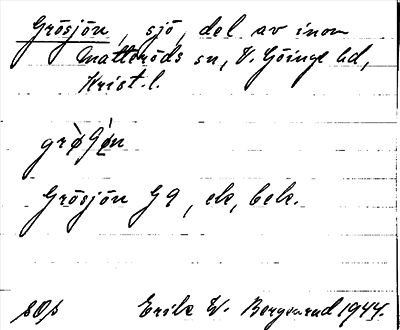 Grösjön, sjö, del av inom
Matteröds sn, V. Göinge hd,
Krist. l.
Grösjön G9, ek, bek.
SOs Erik W. Bergsrud 1944.